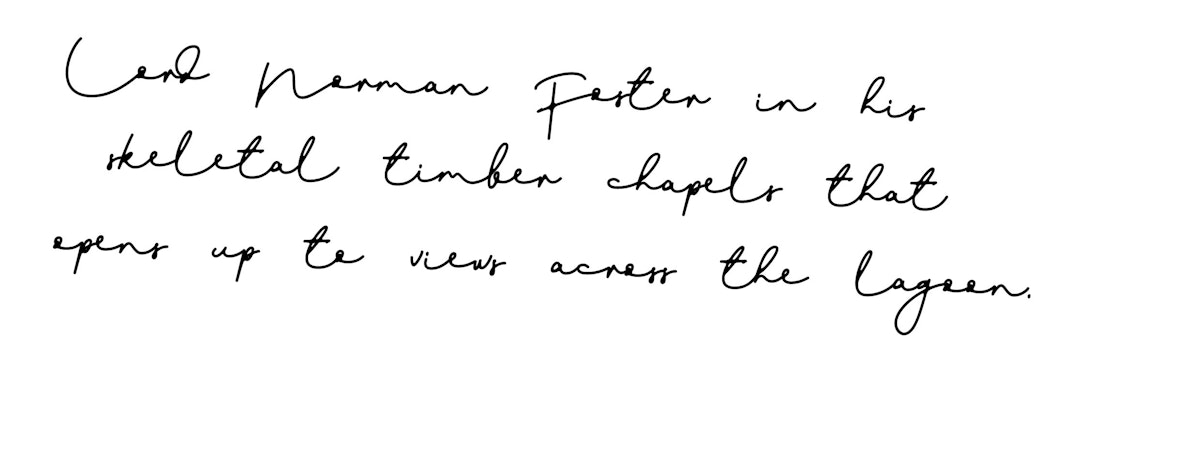 Lord Norman Foster in his
skeletal timber chapels that
opens up to views across the lagoon.